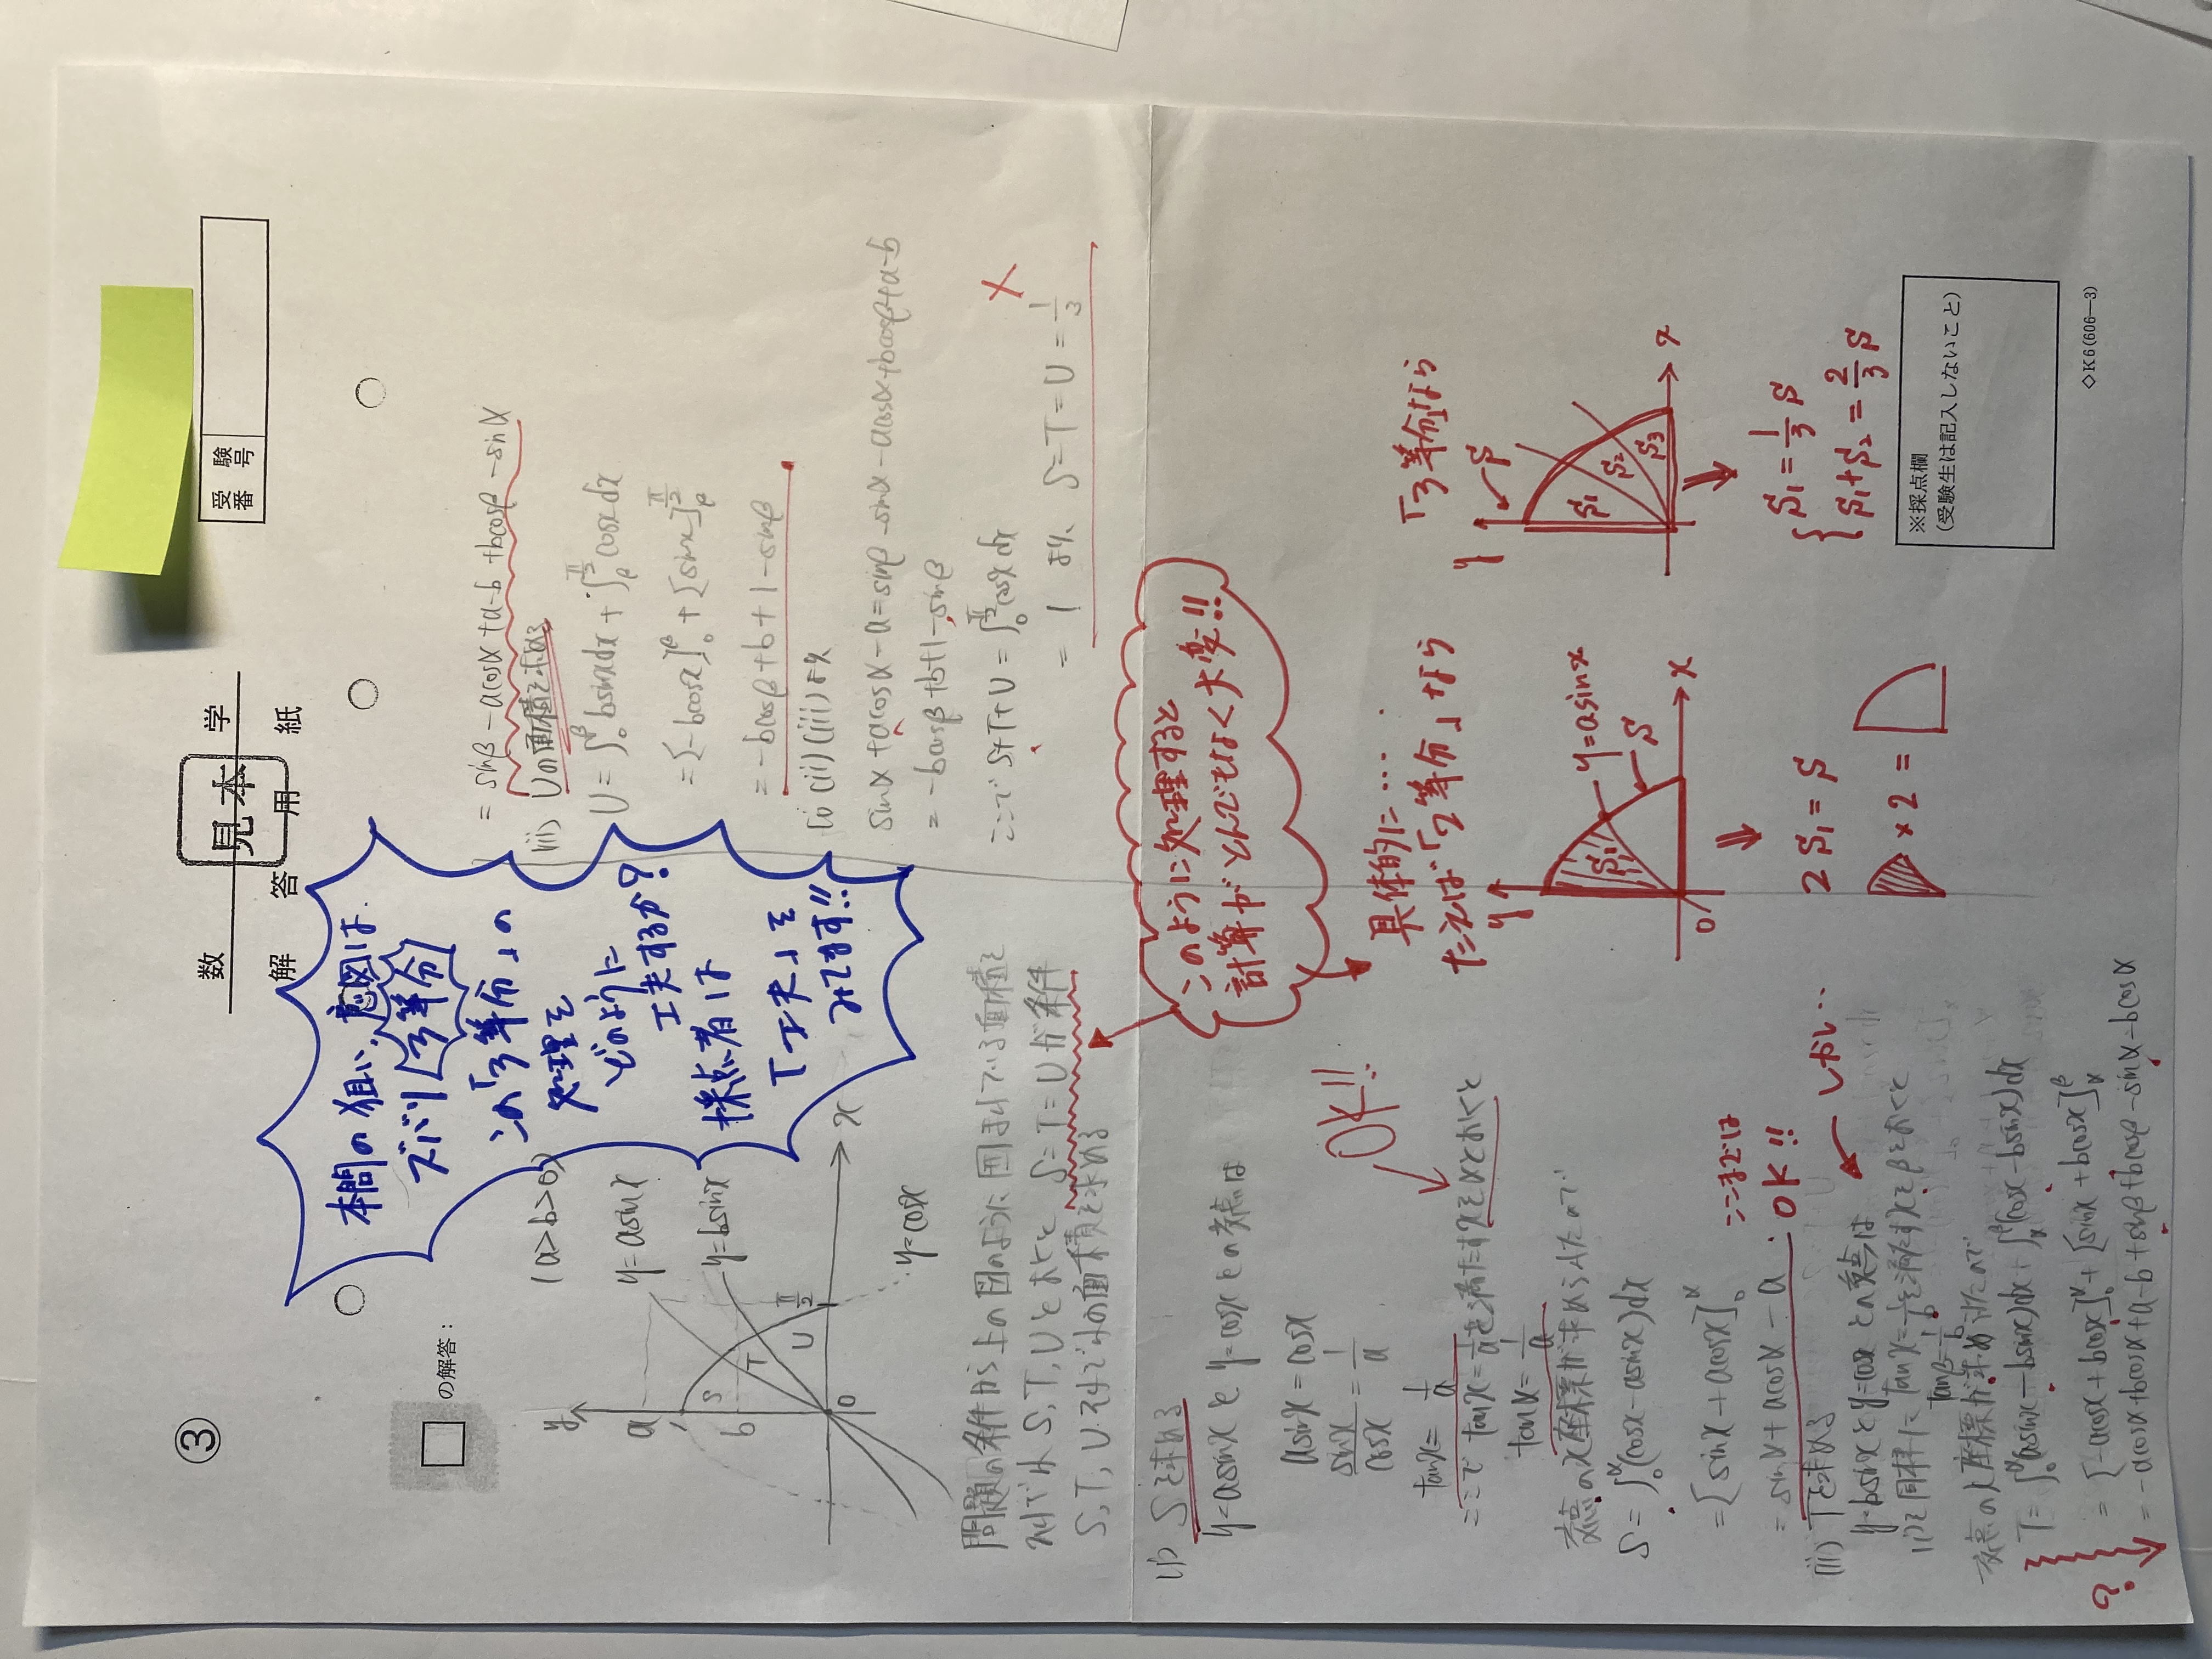 ③
数学
見本
解答用紙
受験番号
の解答:
(a>b>0)
y
a
1
b
S
T
U
O
π/2
x
y=asinx
y=bsinx
y=cosx
本問の狙い、意図は
ズバリ「3等分」
この「3等分」の
処理を
どのように
工夫するか?
採点者は
「工夫」を
みてます!!
問題の条件から上の図のように囲まれている面積を
それぞれS,T,Uとおくと S=T=Uが条件
S,T,Uそれぞれの面積を求める
(i) Sを求める
y=asinxとy=cosxとの交点は
asinx=cosx
sinx/cosx=1/a
tanx=1/a
ここで tanx=1/aを満たすxをαとおくと
tanα=1/a
OK!!
交点のx座標が求められたので
S=∫₀^α(cosx-asinx)dx
=[sinx+acosx]₀^α
=sinα+acosα-a
ここまでは
OK!!
しかし‥
(ii) Tを求める
y=bsinxとy=cosxとの交点は
(i)と同様に tanx=1/bを満たすxをβとおくと
tanβ=1/b
交点のx座標が求めれたので
T=∫₀^α(asinx-bsinx)dx+∫_α^β(cosx-bsinx)dx
=[-acosx+bcosx]₀^α+[sinx+bcosx]_α^β
=-acosα+bcosα+a-b+sinβ+bcosβ-sinα-bcosα
?
=sinβ-acosα+a-b+bcosβ-sinα
(iii) Uの面積を求める
U=∫₀^β bsinxdx+∫_β^{π/2}cosxdx
=[-bcosx]₀^β+[sinx]_β^{π/2}
=-bcosβ+b+1-sinβ
(i)(ii)(iii)より
sinα+acosα-a=sinβ-sinα-acosα+bcosβ+a-b
=-bcosβ+b+1-sinβ
ここで S+T+U=∫₀^{π/2}cosxdx
=1 より、S=T=U=1/3
このように処理すると
計算がとんでもなく大変!!
具体的に…
たとえば「2等分」なら
y
y=asinx
S
S₁
O
x
2S₁=S
×2=
「3等分」なら
y
S
S₁
S₂
S₃
x
S₁=1/3 S
S₁+S₂=2/3 S
※採点欄
(受験生は記入しないこと)
◇K6(606—3)